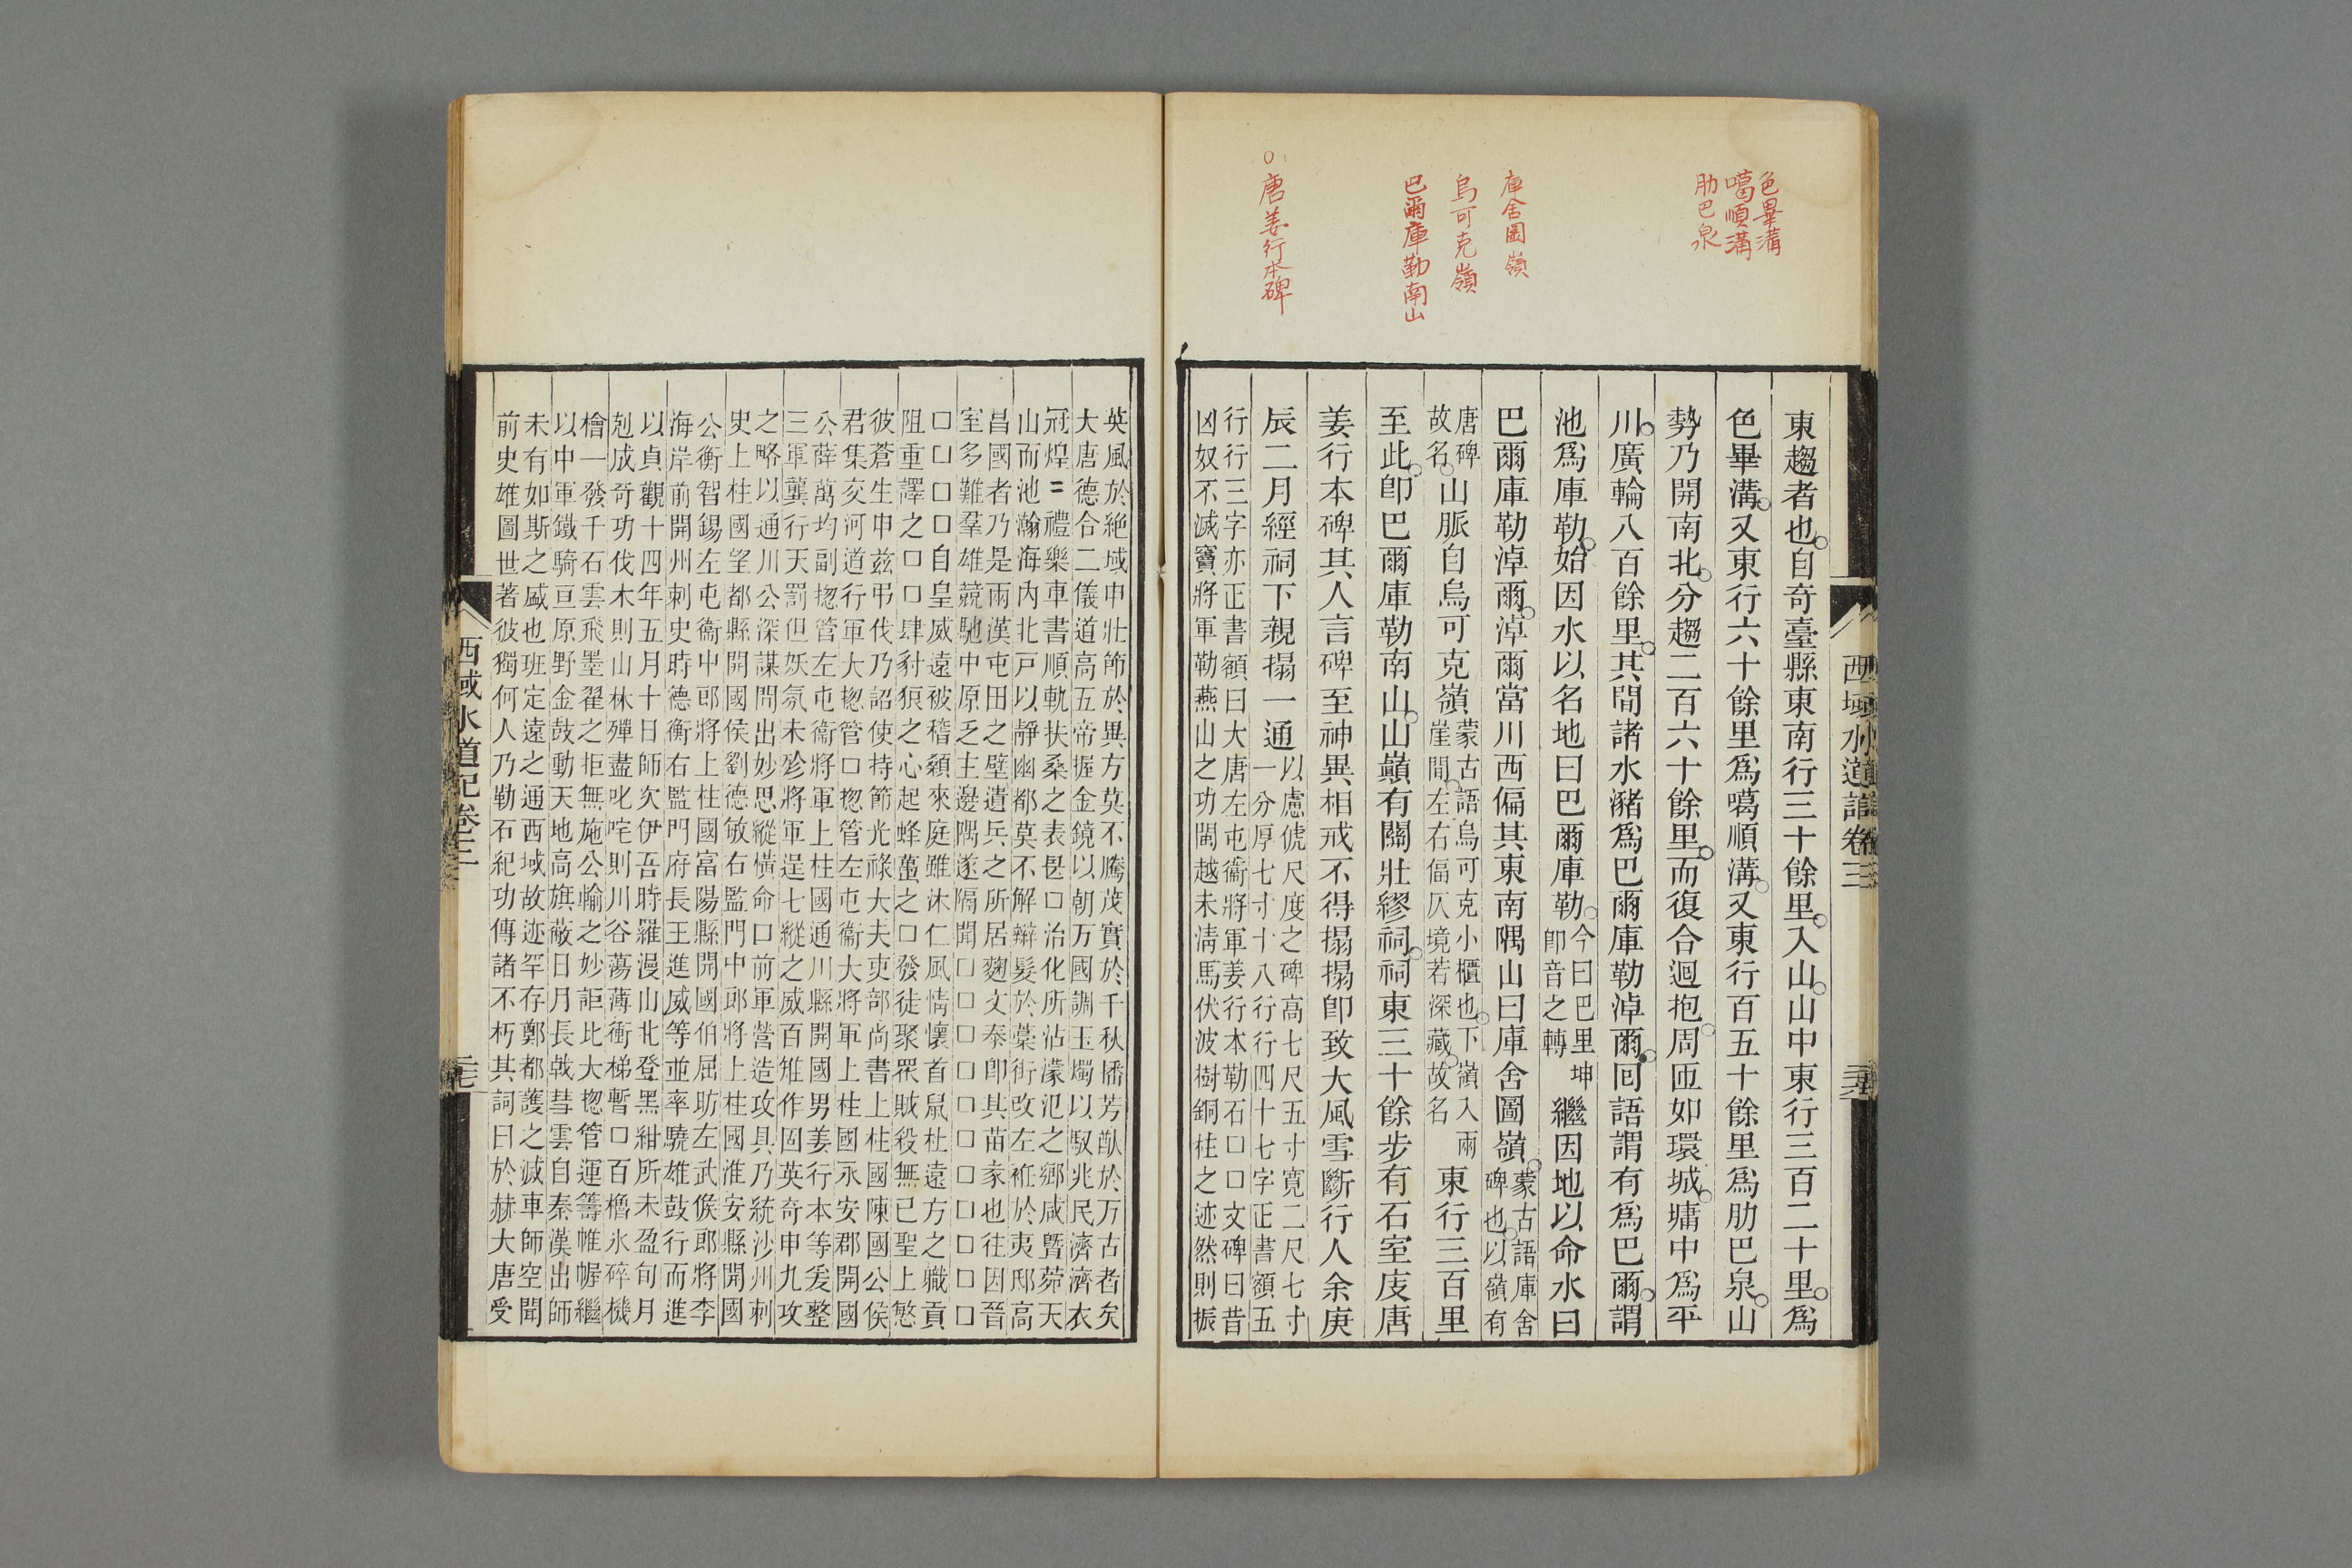 色畢溝
噶順溝
肋巴泉
庫舍圖嶺
烏可克嶺
巴爾庫勒南山
○唐姜行本碑
西域水道記卷三
東趨者也自奇臺縣東南行三十餘里入山山中東行三百二十里爲
色畢溝又東行六十餘里爲噶順溝又東行百五十餘里爲肋巴泉山
勢乃開南北分趨二百六十餘里而復合迴抱周匝如環城墉中爲平
川廣輪八百餘里其間諸水瀦爲巴爾庫勒淖爾囘語謂有爲巴爾謂
池爲庫勒始因水以名地曰巴爾庫勒今曰巴里坤卽音之轉繼因地以命水曰
巴爾庫勒淖爾淖爾當川西偏其東南隅山曰庫舍圖嶺蒙古語庫舍碑也以嶺有
唐碑故名山脈自烏可克嶺蒙古語烏可克小櫃也下嶺入兩崖間左右偪仄境若深藏故名東行三百里
至此卽巴爾庫勒南山山巔有關壯繆祠祠東三十餘步有石室庋唐
姜行本碑其人言碑至神異相戒不得搨搨卽致大風雪斷行人余庚
辰二月經祠下親搨一通以慮俿尺度之碑高七尺五寸寬二尺七寸一分厚七寸十八行行四十七字正書額五
行行三字亦正書額曰大唐左屯衞將軍姜行本勒石口口文碑曰昔
凶奴不滅竇將軍勒燕山之功閩越未淸馬伏波樹銅柱之迹然則振
英風於絕域申壯節於異方莫不騰茂實於千秋播芳猷於万古者矣
大唐德合二儀道高五帝握金鏡以朝万國調玉燭以馭兆民濟濟衣
冠煌〓禮樂車書順軌扶桑之表㫘口治化所沾濛汜之鄉咸曁菀天
山而池瀚海內北戸以靜幽都莫不解辮髮於藁街改左袵於夷邸高
昌國者乃是兩漢屯田之壁遺兵之所居麴文泰卽其苗裔也往因晉
室多難羣雄競馳中原乏主邊隅遂隔聞口口口口口口口口口口
口口口口自皇威遠被稽顙來庭雖沐仁風情懷首鼠杜遠方之職貢
阻重譯之口口肆豺狼之心起蜂蠆之口發徒聚眾賊殺無已聖上慜
彼蒼生申茲弔伐乃詔使持節光祿大夫吏部尙書上柱國陳國公侯
君集交河道行軍大揔管口揔管左屯衞大將軍上柱國永安郡開國
公薛萬均副揔管左屯衞將軍上柱國通川縣開國男姜行本等爰整
三軍龔行天罰但妖氛未殄將軍逞七縱之威百雉作固英奇申九攻
之略以通川公深謀閒出妙思縱橫命口前軍營造攻具乃統沙州刺
史上柱國望都縣開國侯劉德敏右監門中郎將上柱國淮安縣開國
公衡智錫左屯衞中郎將上柱國富陽縣開國伯屈昉左武候郎將李
海岸前開州刺史時德衡右監門府長王進威等並率驍雄鼓行而進
以貞觀十四年五月十日師次伊吾時羅漫山北登黑紺所未盈旬月
剋成奇功伐木則山林殫盡叱咤則川谷蕩薄衝梯暫口百櫓氷碎機
檜一發千石雲飛墨翟之拒無施公輸之妙詎比大揔管運籌帷幄繼
以中軍鐵騎亘原野金鼓動天地高旗蔽日月長戟彗雲自秦漢出師
未有如斯之盛也班定遠之通西域故迹罕存鄭都護之滅車師空聞
前史雄圖世著彼獨何人乃勒石紀功傳諸不朽其詞曰於赫大唐受
西域水道記卷三